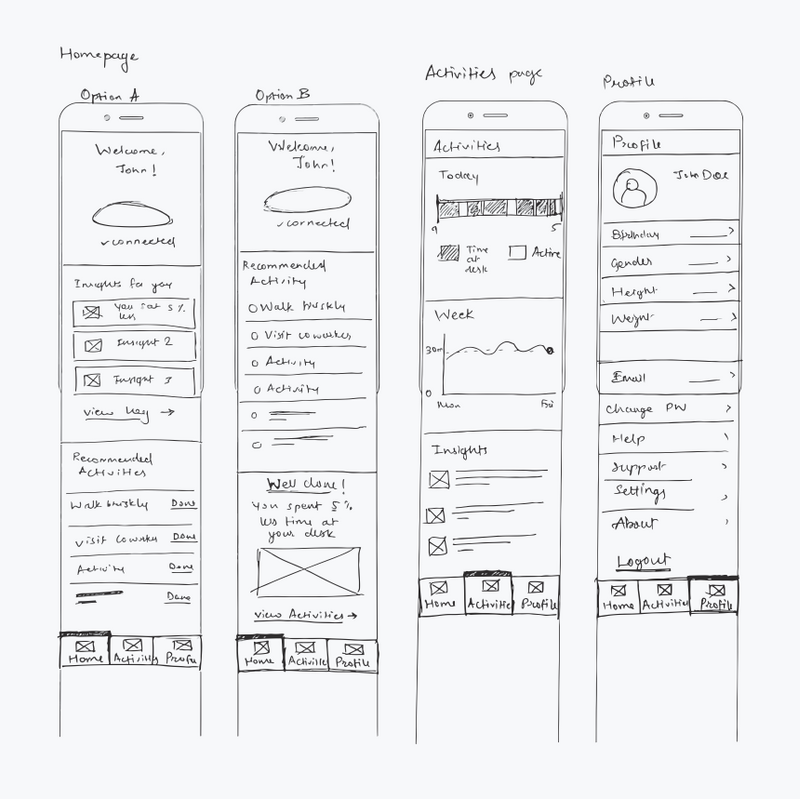 Homepage
Option A
Welcome,
John!
✓connected
Insights for you
5 %
less
Insight 2
Insight 3
View →
Recommended
Activities
Walk briskly Done
Visit coworker Done
Activity Done
Done
Home Activities Profile
Option B
Welcome,
John!
✓connected
Recommended
Activity
Walk briskly
Visit coworker
Activity
Activity
Well done!
You spent 5 %
less time at
your desk
View Activities →
Home Activities Profile
Activities page
Activities
Today
9 5
Time
at
desk
Active
Week
30m
0
Mon Fri
Insights
Home Activities Profile
Profile
Profile
John Doe
Birthday
Gender
Height
Weight
Email
Change PW
Help
Support
Settings
About
Logout
Home Activities Profile